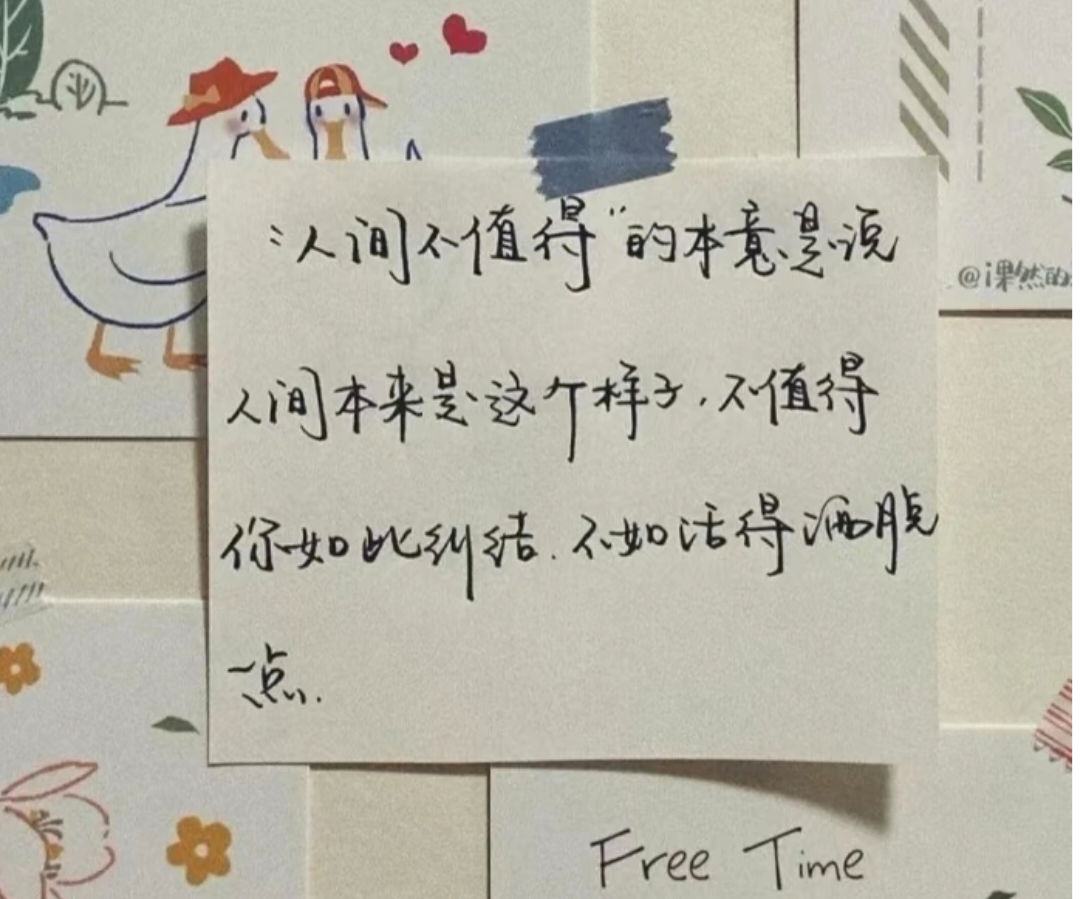 @课然的
"人间不值得"的本意是说
人间本来是这个样子.不值得
你如此纠结.不如活得洒脱
一点.
Free Time